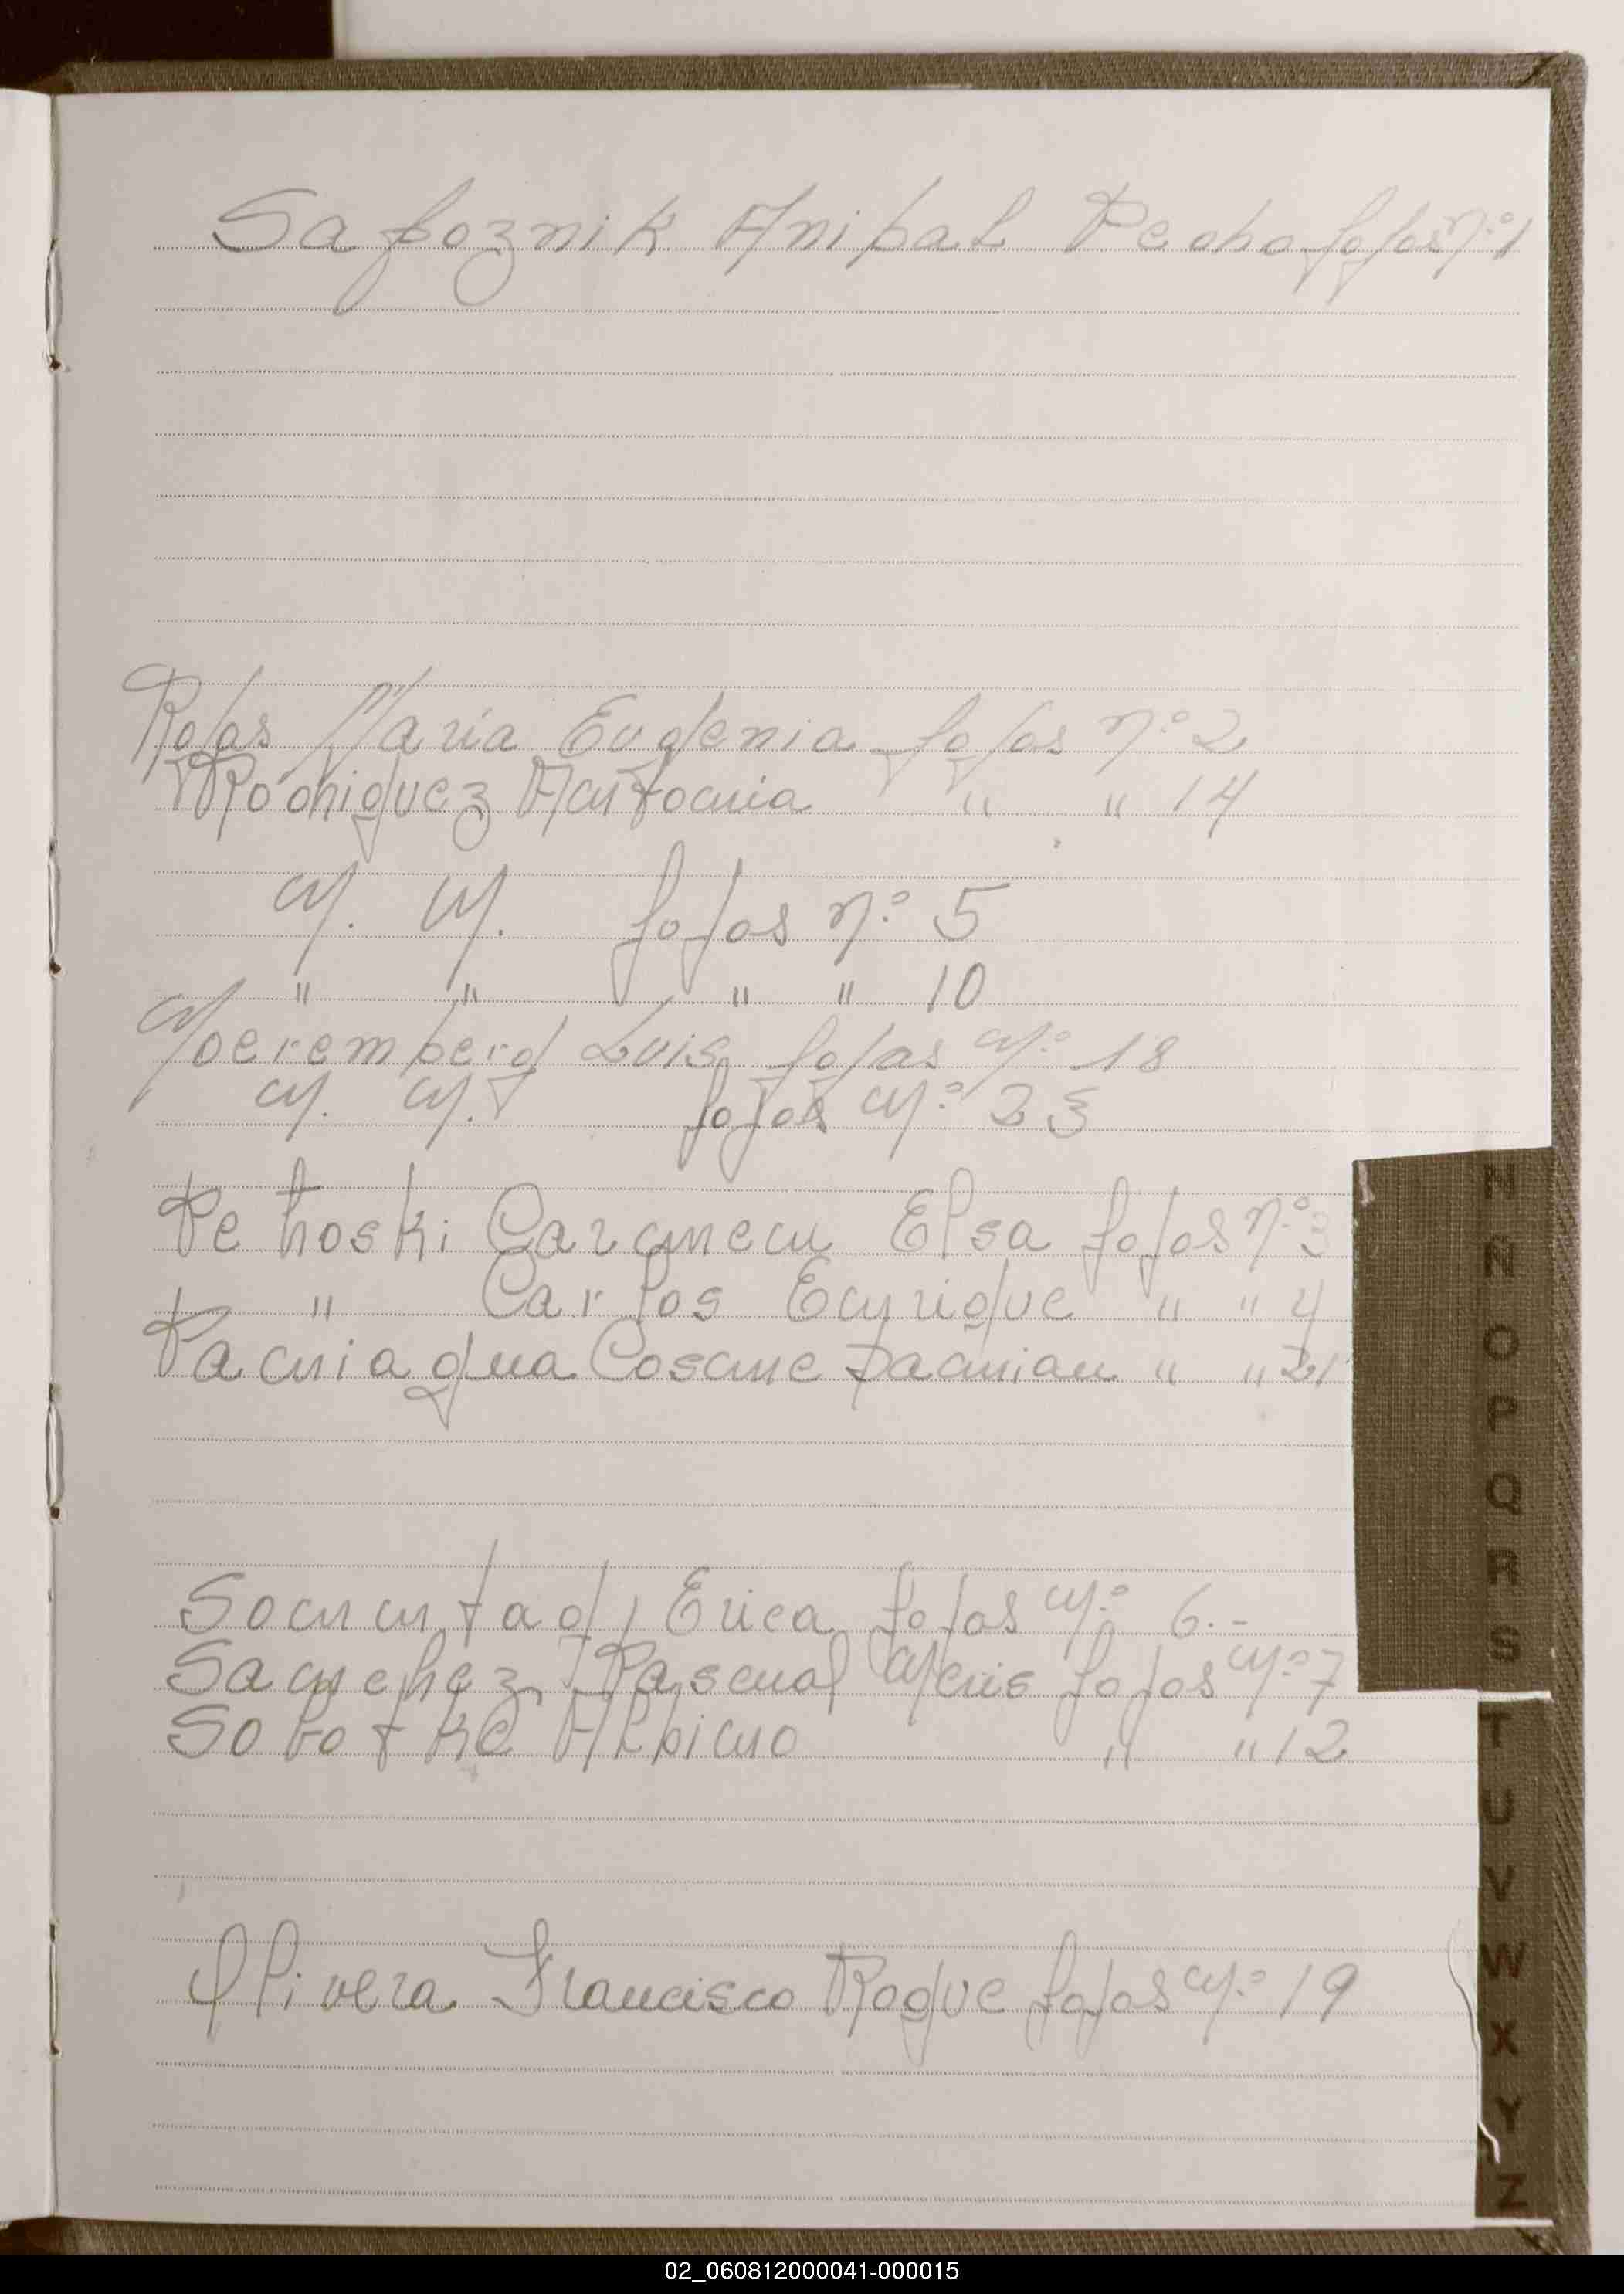 Sapoznik Anibal Pedro fojas n.º 1
Rojas María Eugenia fojas n.º 2
Rodriguez Antonia " " 14
N. N. fojas n.º 5
" " " " 10
Noeremberg Luis fojas N.º 18
N. N. fojas N.º 23
Petroski Carmen Elsa fojas n.º 3
" Carlos Enrique " " 4
Paniagua Cosme Damian " " 21
Sonntag, Erica fojas N.º 6.-
Sanchez, Pascual fojas N.º 7
Sobotke Albino " " 12
Olivera Francisco Roque fojas N.º 19
N
Ñ
O
P
Q
R
S
T
U
V
W
X
Y
Z
02_060812000041-000015